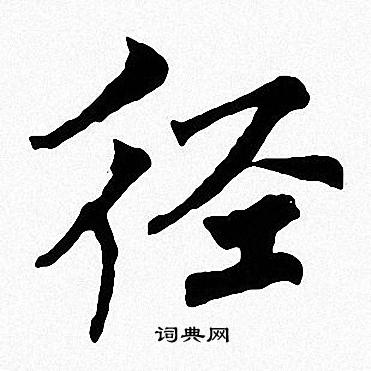 径
词典网